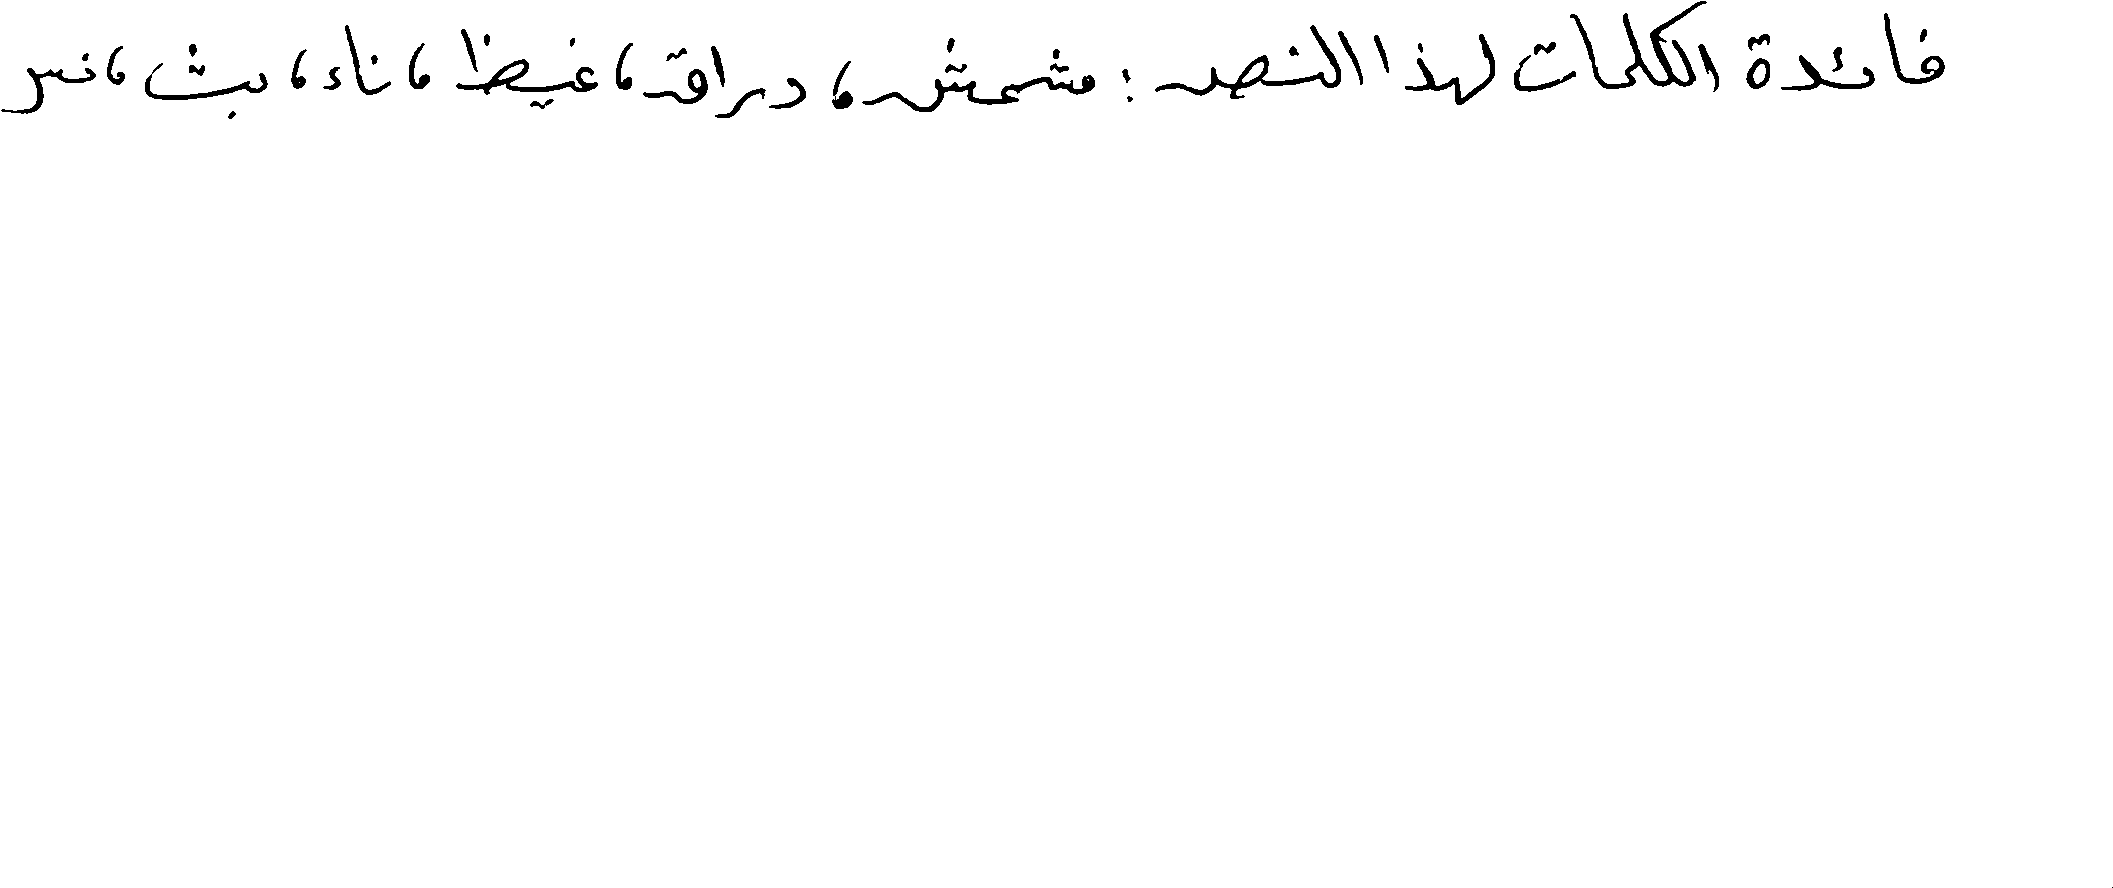 فائدة الكلمات لهذا النص: مشمش، دراق، غيظ، ناء، بث، نسر